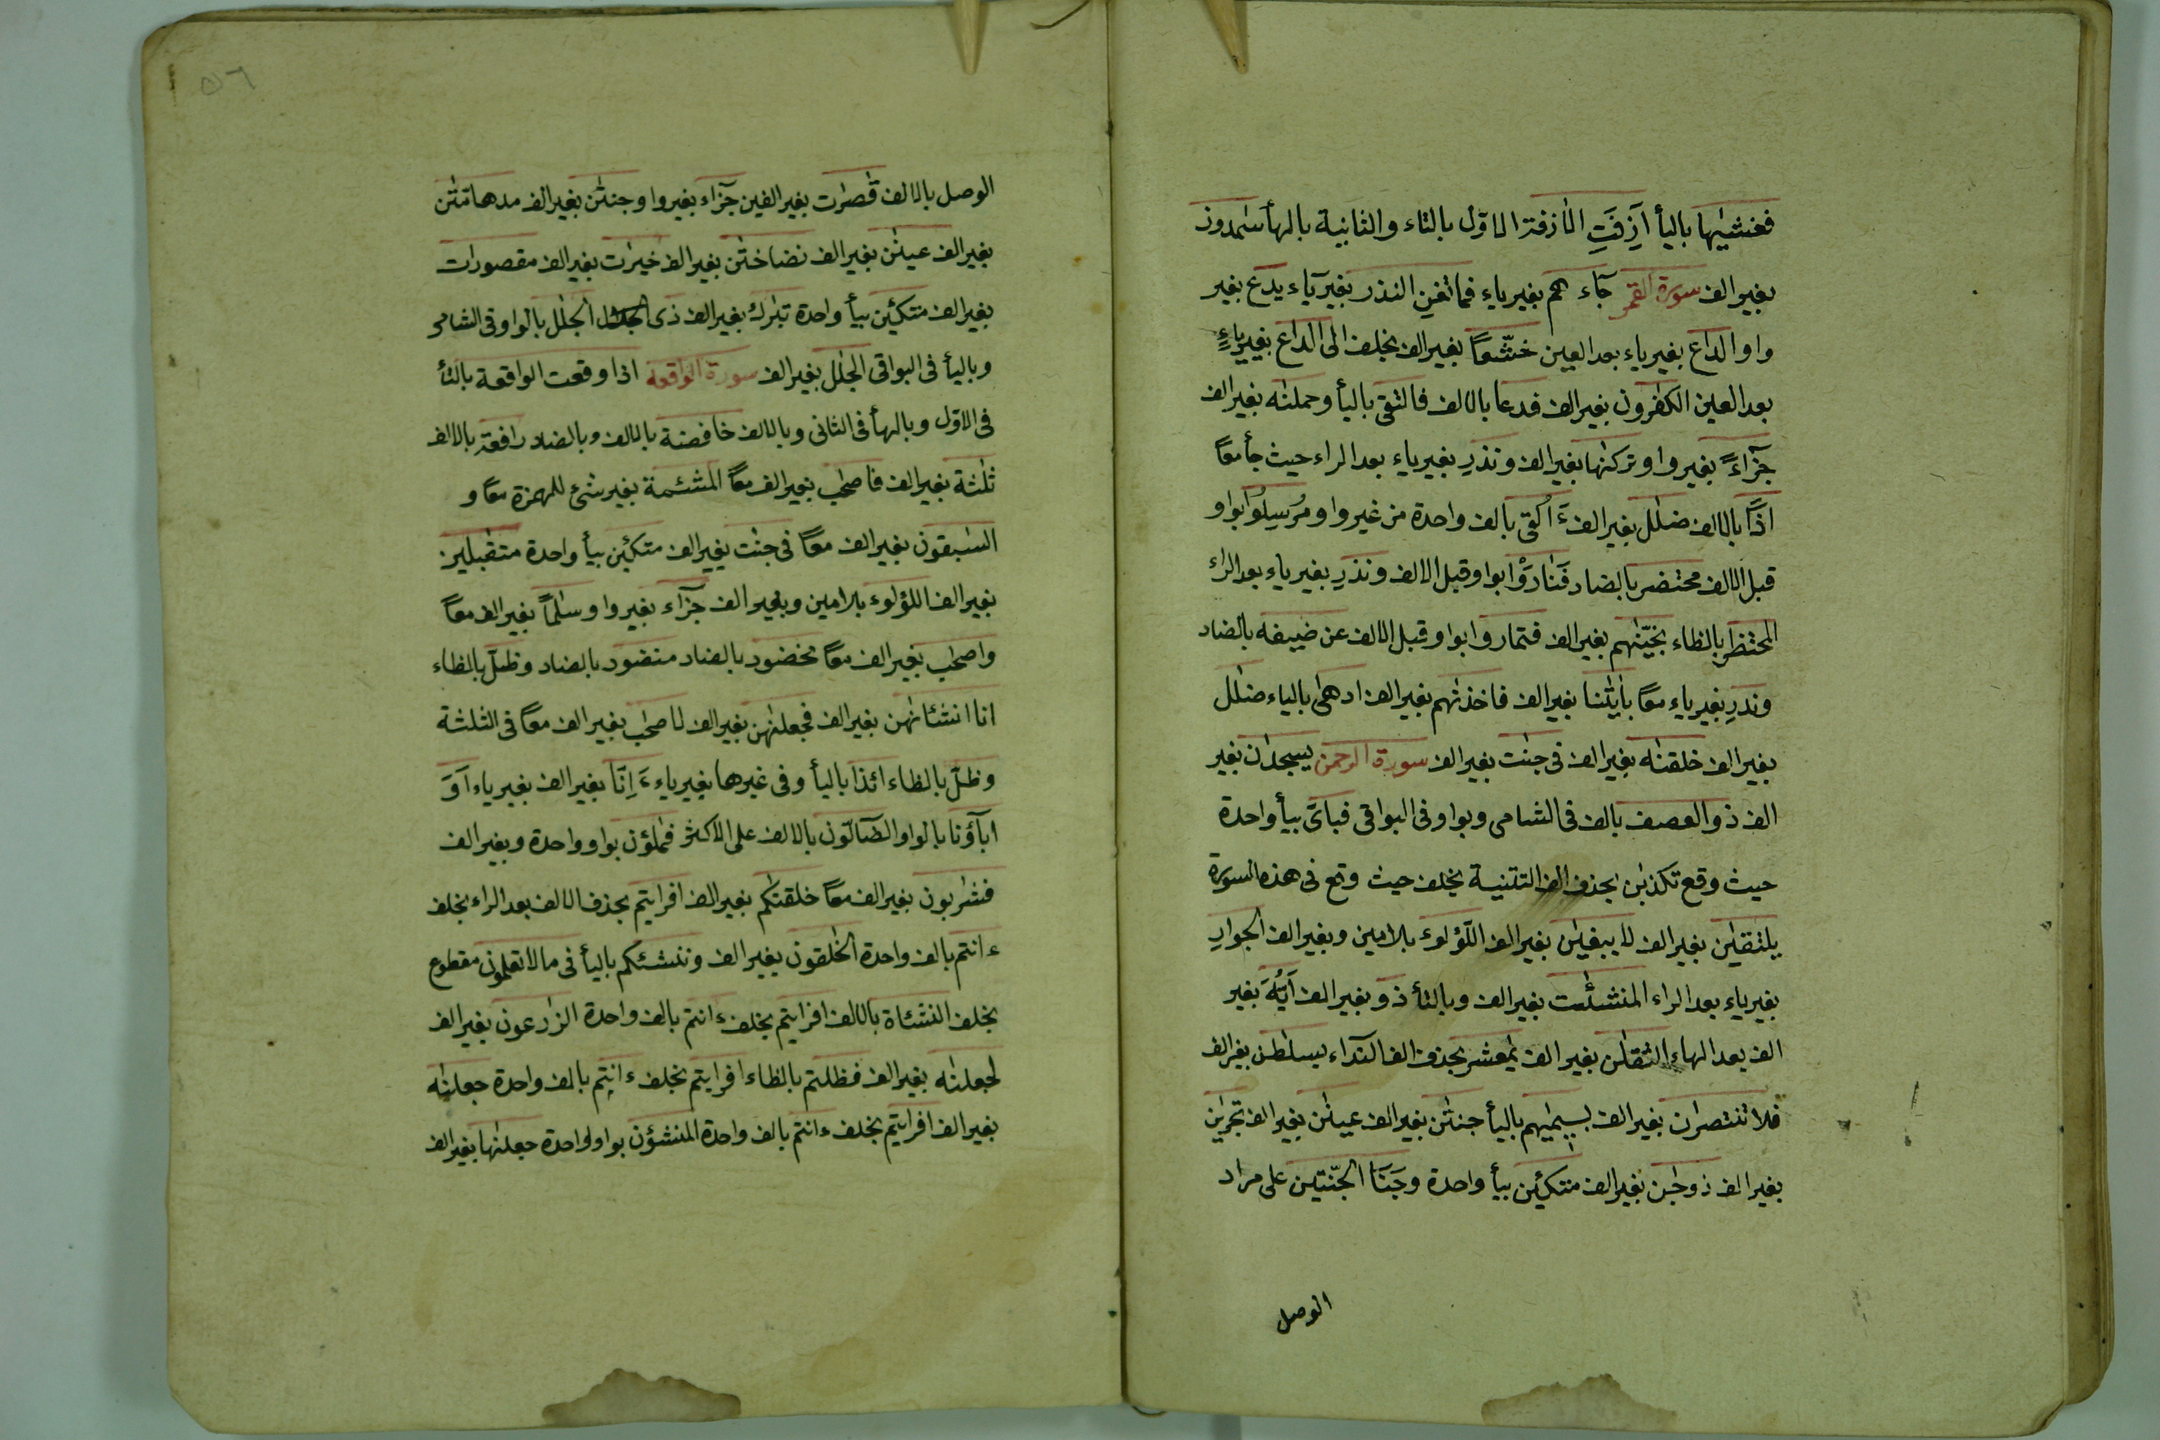 فغشيٰها باليأ اَزِفَتِ الْاٰزفة الاوّل بالتاء والثانية بالهأ سٰمدون
بغير الف سورة القمر جآء هم بغير ياء فما تغنِ النذر بغير ياء يدع بغير
واو الداع بغير ياء بعد العين خشّعًا بغير الف بخلف الى الداع بغير ياءٍ
بعد العين الكٰفرون بغير الف فدعا بالالف فالتقى باليأ وحملنٰه بغير الف
جزآءً بغير واو تركنٰها بغير الف ونذرِ بغير ياء بعد الراء حيث جأ معًا
اذًا بالالف ضلٰل بغير الف ءَاُلقى بالف واحدة من غير واو مرسلوا بواو
قبل الالف محتضر بالضاد فَنَادَوْا بواو قبل الالف ونذرِ بغير ياء بعد الراء
المحتظر بالظاء نجّينٰهم بغير الف فتماروا بواو قبل الالف عن ضيفه بالضاد
ونذرِ بغير ياء معًا باٰيٰتنا بغير الف فاخذنٰهم بغير الف ادهىٰ بالياء ضلٰل
بغير الف خلقنٰه بغير الف فى جنٰت بغير الف سورة الرحمن يسجدٰن بغير
الف ذو العصف بالف فى الشامى وبواو فى البواقى فباىّ بيأ واحدة
حيث وقع تكذبٰن بحذف الف التثنية بخلف حيث وقع فى هذه السورة
يلتقيٰن بغير الف لا يبغيٰن بغير الف اللّؤلوء بلامين وبغير الف الجوارِ
بغير ياء بعد الراء المنشئٰت بغير الف وبالتأ ذو بغير الف اَيُّهَ بغير
الف بعد الهاء الثقلٰن بغير الف يٰمعشر بحذف الف النداء بسلطٰن بغير الف
فلا تنتصرٰن بغير الف بسيمٰيهم باليأ جنتٰن بغير الف عينٰن بغير الف تجريٰن
بغير الف زوجٰن بغير الف متكئين بيأ واحدة وجَنَا الجنّتين على مراد
الوصل
٥٦
الوصل بالالف قٰصرٰت بغير الفين جزآء بغير واو جنتٰن بغير الف مدهامّتٰن
بغير الف عينٰن بغير الف نضاختٰن بغير الف خيرٰت بغير الف مقصورات
بغير الف متكئين بيأ واحدة تبٰرك بغير الف ذى الجلٰل بالواو فى الشامى
وباليأ فى البواقى الجلٰل بغير الف سورة الواقعة اذا وقعت الواقعة بالتأ
فى الاوّل وبالهأ فى الثانى وبالالف خافضة بالالف وبالضاد رافعة بالالف
ثلٰثة بغير الف فاصحٰب بغير الف معًا المشئمة بغير شئ للهمزة معًا و
السٰبقون بغير الف معًا فى جنٰت بغير الف متكئين بيأ واحدة متقٰبلين
بغير الف اللؤلوء بلامين وبغير الف جزآء بغير واو سلٰمًا بغير الف معًا
واصحٰب بغير الف معًا مخضود بالضاد منضود بالضاد وظلّ بالظاء
انا انشئانٰهن بغير الف فجعلنٰهن بغير الف لاصحٰب بغير الف معًا فى الثلثة
وظلّ بالظاء ائذا باليأ وفى غيرها بغير ياء ءَاِنّا بغير الف بغير ياء اَوَ
اٰبآؤنا بالواو الضّآلّون بالالف على الاكثر فمٰلؤن بواو واحدة وبغير الف
فشٰربون بغير الف معًا خلقنٰكم بغير الف افرايتم بحذف الالف بعد الراء بخلف
ءانتم بالف واحدة الخٰلقون بغير الف وننشئكم باليأ فى ما لا تعلمون مقطوع
بخلف النشئاة بالالف افرايتم بخلف ءانتم بالف واحدة الزٰرعون بغير الف
لجعلنٰه بغير الف فظلتم بالظاء افرايتم بخلف ءانتم بالف واحدة جعلنٰه
بغير الف افرايتم بخلف ءانتم بالف واحدة المنشؤن بواو واحدة جعلنٰها بغير الف